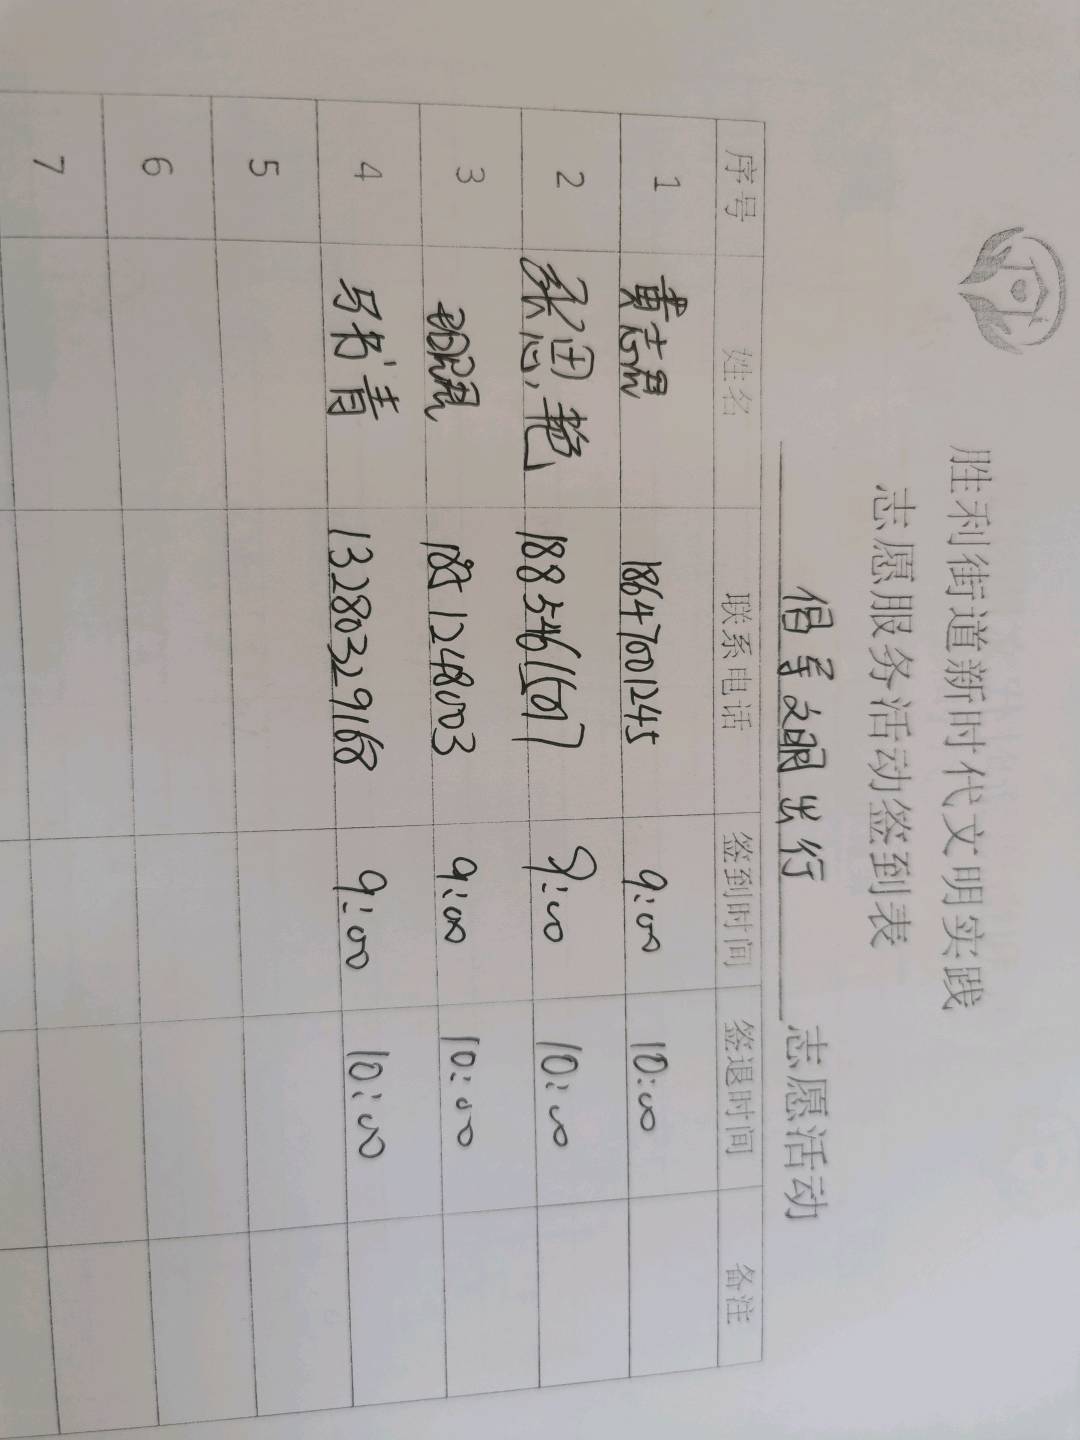 胜利街道新时代文明实践
志愿服务活动签到表
倡导文明出行 志愿活动
序号 姓名 联系电话 签到时间 签退时间 备注
1 黄志昆 18647001245 9:00 10:00
2 张思艳 9:00 10:00
3 9:00 10:00
4 马书青 13280329168 9:00 10:00
5
6
7